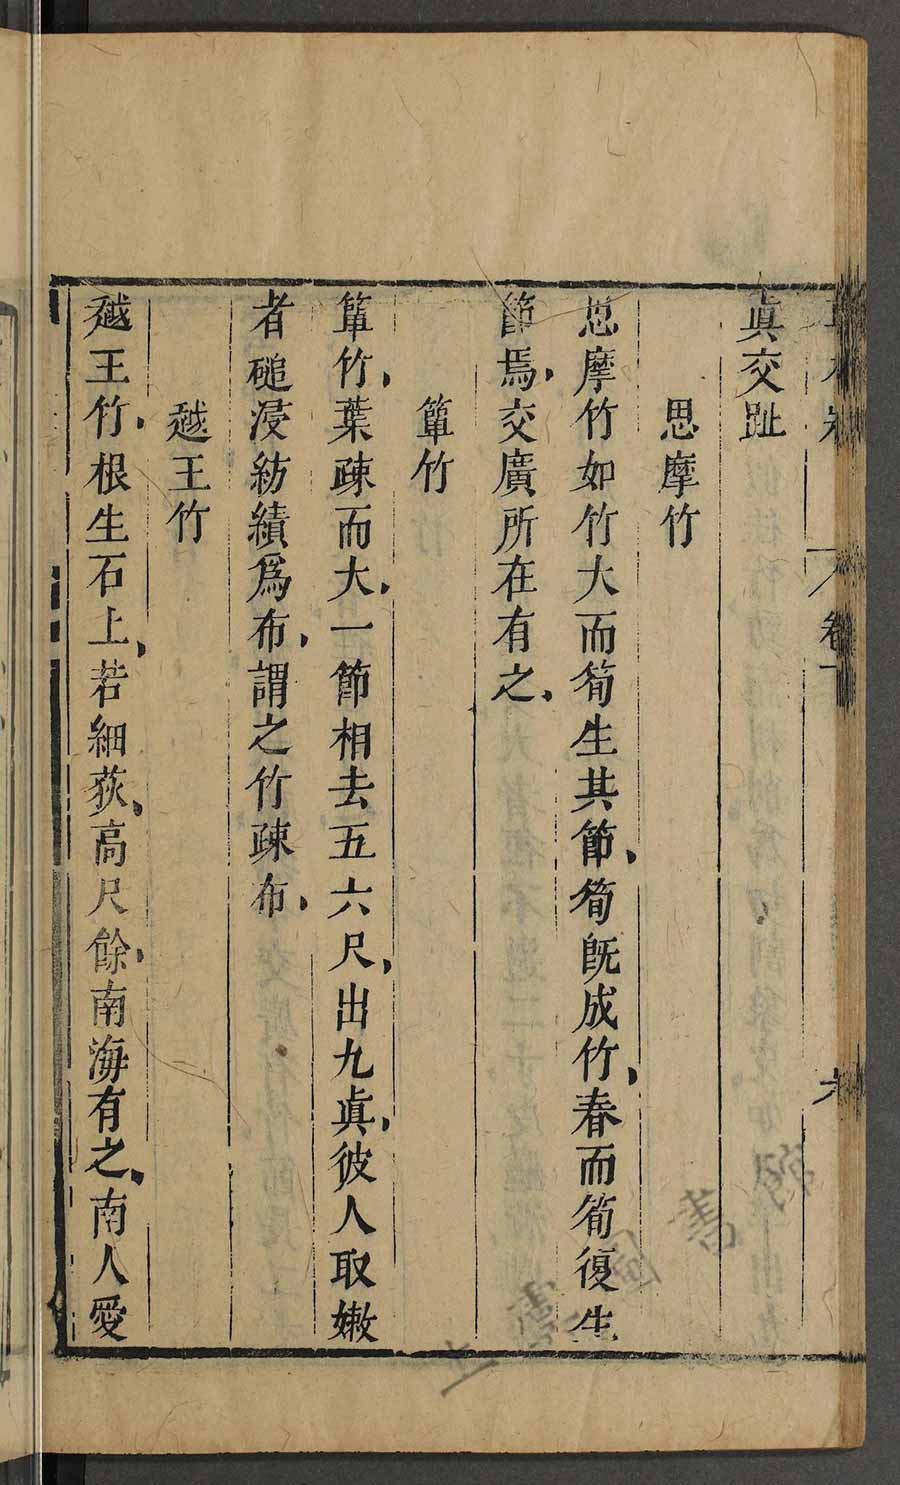 卷下
眞交趾
思摩竹
思摩竹如竹大而筍生其節、筍旣成竹、春而筍復生
節焉、交廣所在有之、
簞竹
簞竹、葉疎而大、一節相去五六尺、出九眞、彼人取嫩
者磓浸紡績爲布、謂之竹疎布、
越王竹
越王竹、根生石上、若細荻、高尺餘、南海有之、南人愛